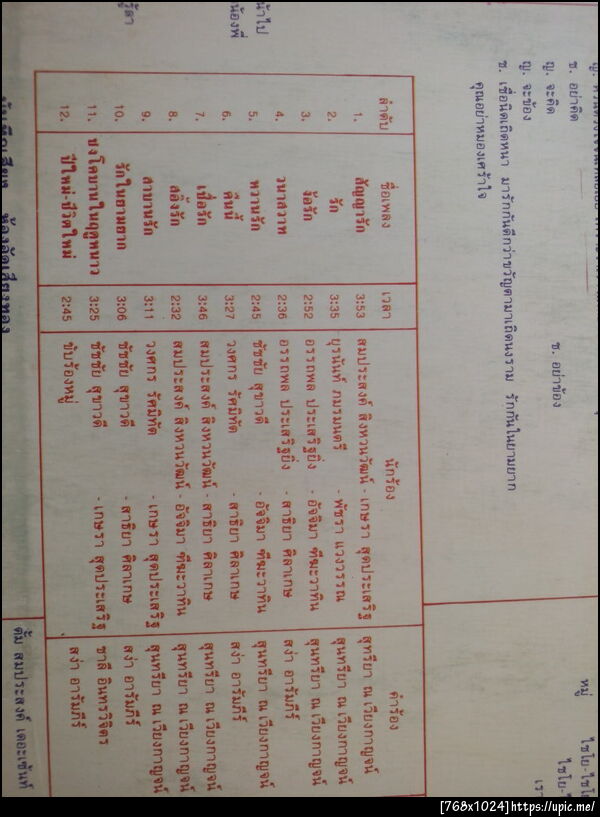 ซ. อย่าคิด
ญ. จะคิด
ญ. จะข้อง
ซ. อย่าข้อง
ซ. เชื่อนิดเถิดหนา มารักกันดีกว่าขวัญตามาเถิดนงราม รักกันในยามยาก
คุณอย่าหมองเศร้าใจ
หมู่
ลำดับ ชื่อเพลง เวลา นักร้อง คำร้อง
1. สัญญารัก 3:53 สมประสงค์ สิงหวนวัฒน์ - เกษรา สุดประเสริฐ สุทรียา ณ เวียงกาญจน์
2. รัก 3:35 ยุรนันท์ ภมรมนตรี - พัชรา แวงวรรณ สุนทรียา ณ เวียงกาญจน์
3. ง้อรัก 2:52 อรรถพล ประเสริฐยิ่ง - อัจจิมา ฑีฆะวาทิน สุนทรียา ณ เวียงกาญจน์
4. วนาสวาท 2:36 อรรถพล ประเสริฐยิ่ง - สาธิยา ศิลาเกษ สง่า อารัมภีร์
5. หวานรัก 2:45 ชัชชัย สุขาวดี - อัจจิมา ฑีฆะวาทิน สุนทรียา ณ เวียงกาญจน์
6. คืนนี้ 3:27 วงศกร รัศมิทัต - สาธิยา ศิลาเกษ สง่า อารัมภีร์
7. เชื่อรัก 3:46 สมประสงค์ สิงหวนวัฒน์ - สาธิยา ศิลาเกษ สุนทรียา ณ เวียงกาญจน์
8. สองรัก 2:32 สมประสงค์ สิงหวนวัฒน์ - อัจจิมา ฑีฆะวาทิน สุนทรียา ณ เวียงกาญจน์
9. สาบานรัก 3:11 วงศกร รัศมิทัต - เกษรา สุดประเสริฐ สุนทรียา ณ เวียงกาญจน์
10. รักในยามยาก 3:06 ชัชชัย สุขาวดี - สาธิยา ศิลาเกษ สง่า อารัมภีร์
11. บงโดบานในฤดูหนาว 3:25 ชัชชัย สุขาวดี - เกษรา สุดประเสริฐ ชาลี อินทรวิจิตร
12. ปีใหม่-ชีวิตใหม่ 2:45 ขับร้องหมู่ สง่า อารัมภีร์
ตั้ม สมประสงค์ เดอะเซ้นท์
[768x1024]https://upic.me/